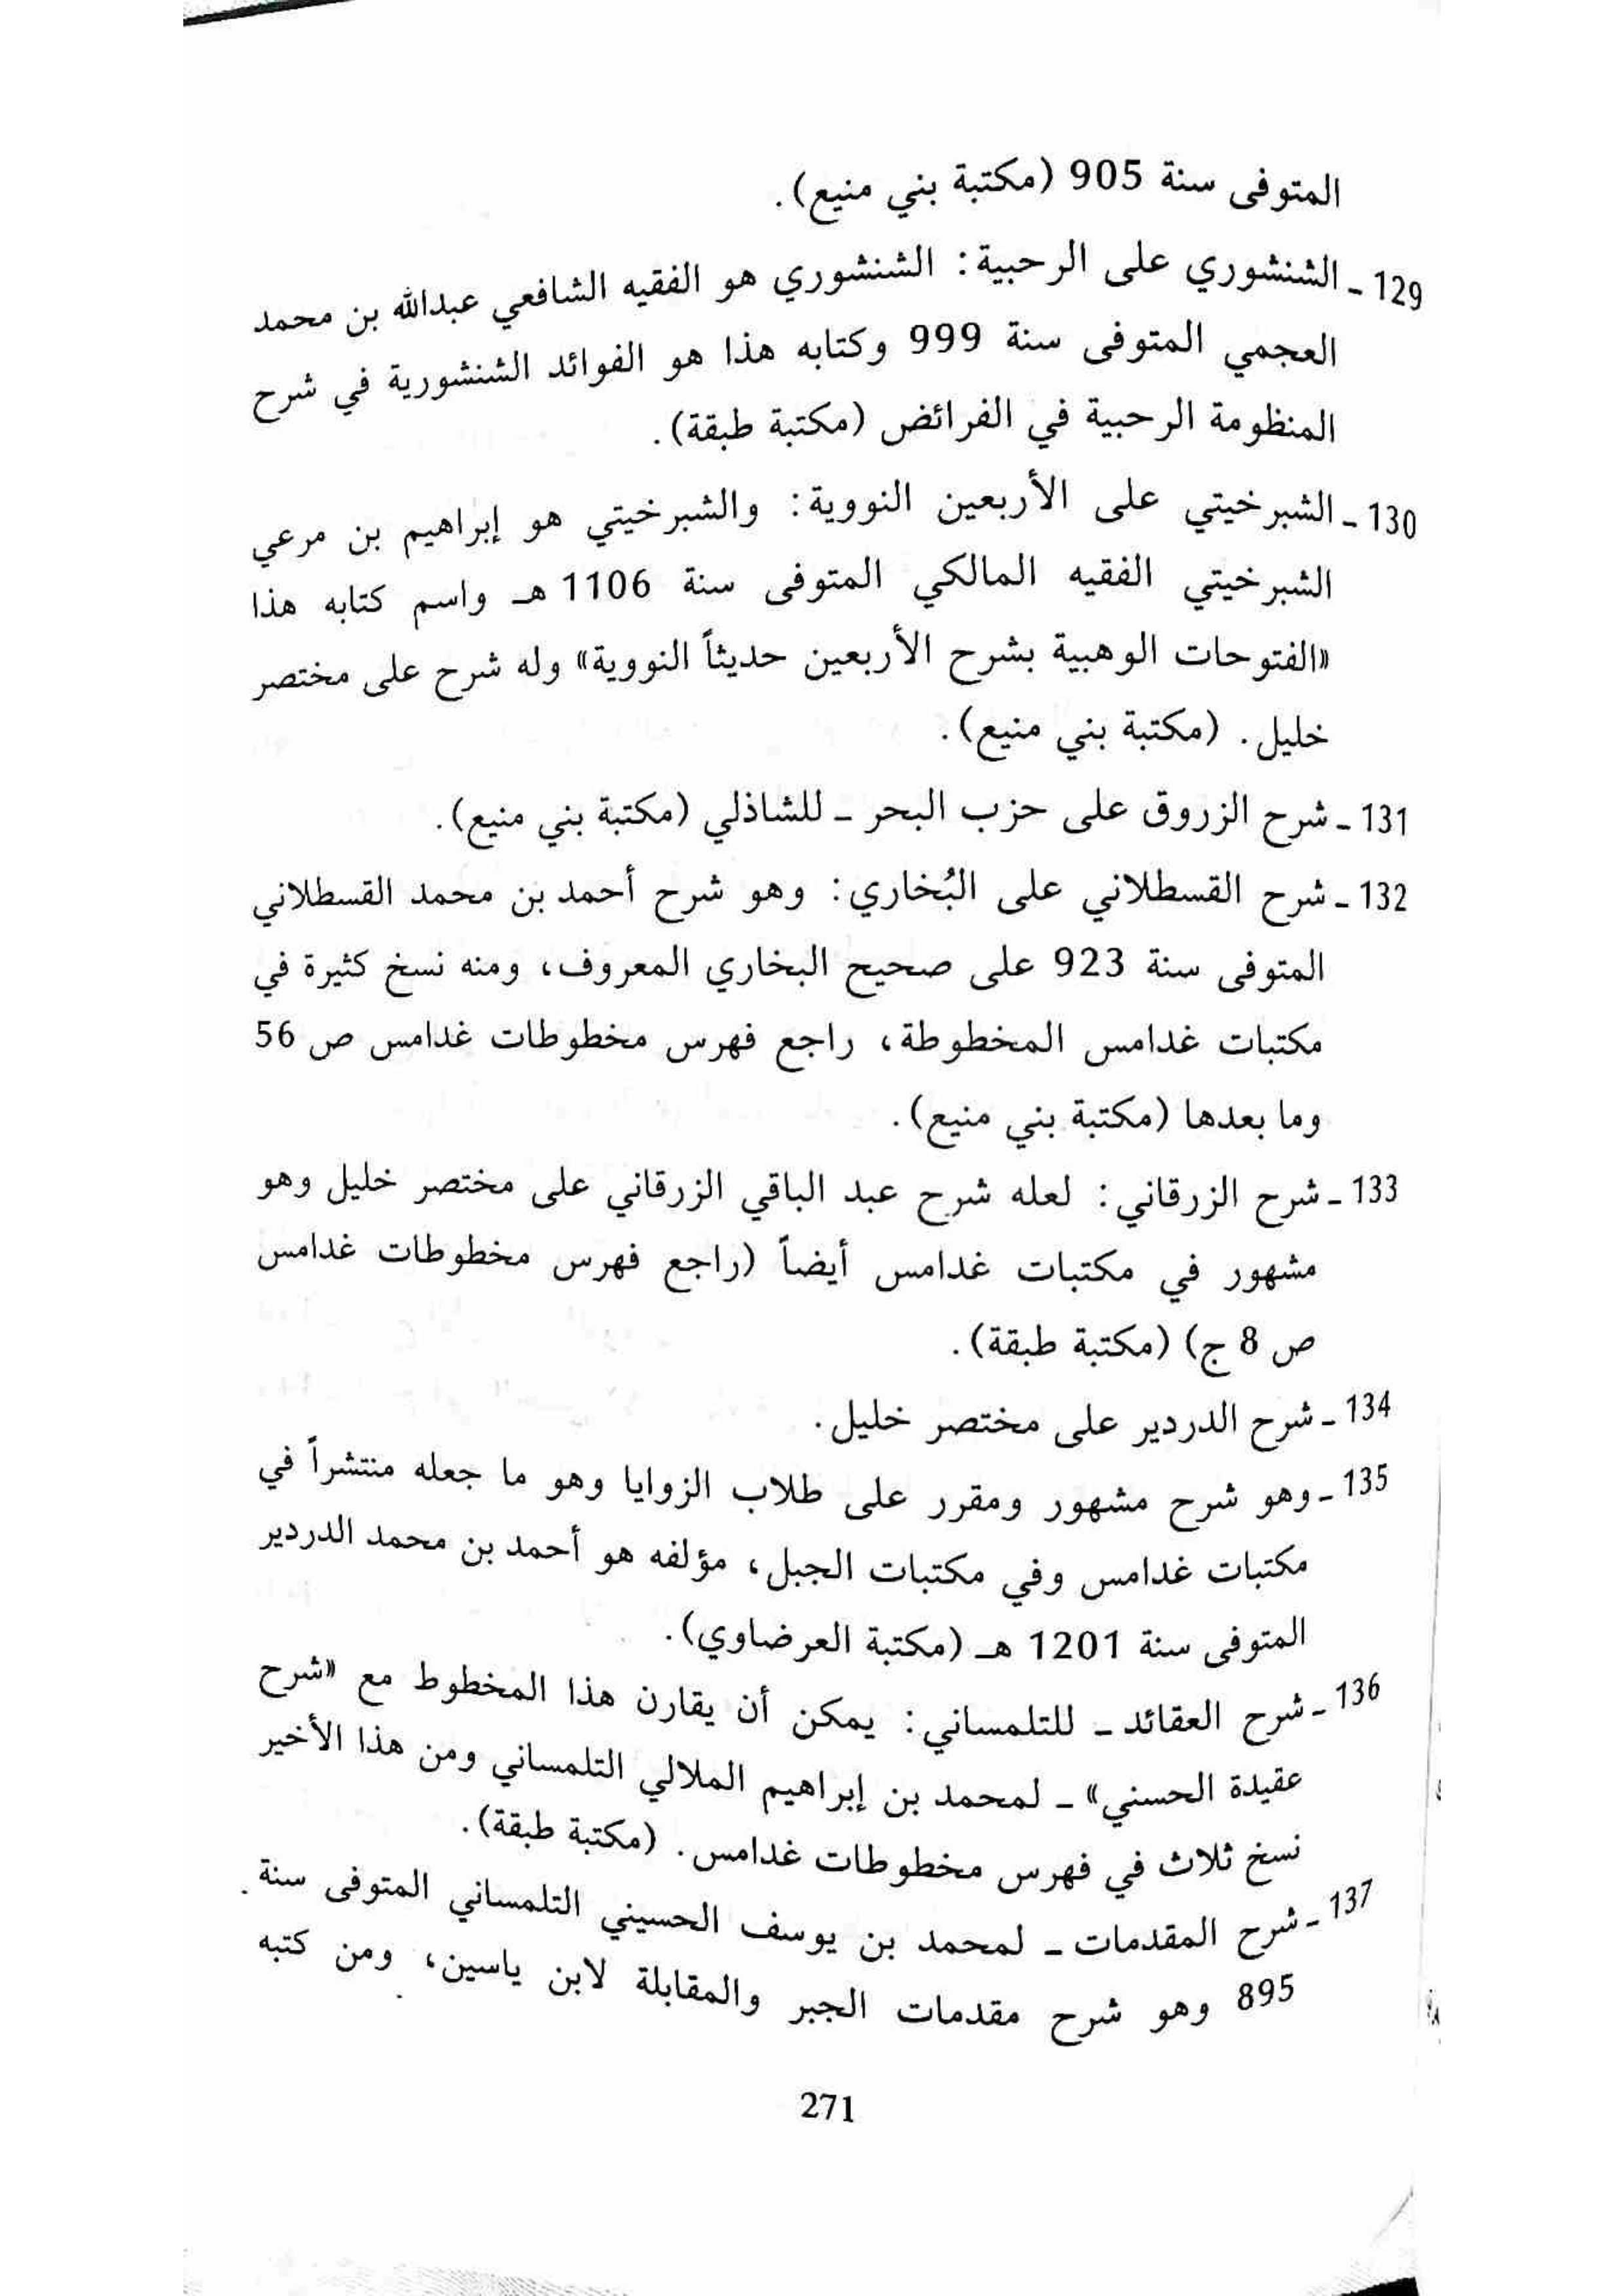 المتوفى سنة 905 (مكتبة بني منيع).
129 ـ الشنشوري على الرحبية: الشنشوري هو الفقيه الشافعي عبدالله بن محمد
العجمي المتوفى سنة 999 وكتابه هذا هو الفوائد الشنشورية في شرح
المنظومة الرحبية في الفرائض (مكتبة طبقة).
130 ـ الشبرخيتي على الأربعين النووية: والشبرخيتي هو إبراهيم بن مرعي
الشبرخيتي الفقيه المالكي المتوفى سنة 1106 هـ واسم كتابه هذا
«الفتوحات الوهبية بشرح الأربعين حديثاً النووية» وله شرح على مختصر
خليل. (مكتبة بني منيع).
131 ـ شرح الزروق على حزب البحر ـ للشاذلي (مكتبة بني منيع).
132 ـ شرح القسطلاني على البُخاري: وهو شرح أحمد بن محمد القسطلاني
المتوفى سنة 923 على صحيح البخاري المعروف، ومنه نسخ كثيرة في
مكتبات غدامس المخطوطة، راجع فهرس مخطوطات غدامس ص 56
وما بعدها (مكتبة بني منيع).
133 ـ شرح الزرقاني: لعله شرح عبد الباقي الزرقاني على مختصر خليل وهو
مشهور في مكتبات غدامس أيضاً (راجع فهرس مخطوطات غدامس
ص 8 ج) (مكتبة طبقة).
134 ـ شرح الدردير على مختصر خليل.
135 ـ وهو شرح مشهور ومقرر على طلاب الزوايا وهو ما جعله منتشراً في
مكتبات غدامس وفي مكتبات الجبل، مؤلفه هو أحمد بن محمد الدردير
المتوفى سنة 1201 هـ (مكتبة العرضاوي).
136 ـ شرح العقائد ـ للتلمساني: يمكن أن يقارن هذا المخطوط مع «شرح
عقيدة الحسني» ـ لمحمد بن إبراهيم الملالي التلمساني ومن هذا الأخير
نسخ ثلاث في فهرس مخطوطات غدامس. (مكتبة طبقة).
137 ـ شرح المقدمات ـ لمحمد بن يوسف الحسيني التلمساني المتوفى سنة
895 وهو شرح مقدمات الجبر والمقابلة لابن ياسين، ومن كتبه
271